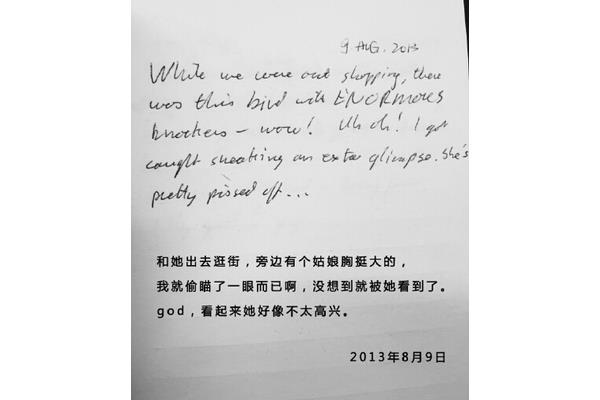 9 AUG. 2013
While we were out shopping, there
was this bird with ENORMOUS
knockers – wow! Uh oh! I got
caught sneaking an extra glimpse. She's
pretty pissed off...
和她出去逛街，旁边有个姑娘胸挺大的，
我就偷瞄了一眼而已啊，没想到就被她看到了。
god，看起来她好像不太高兴。
2013年8月9日